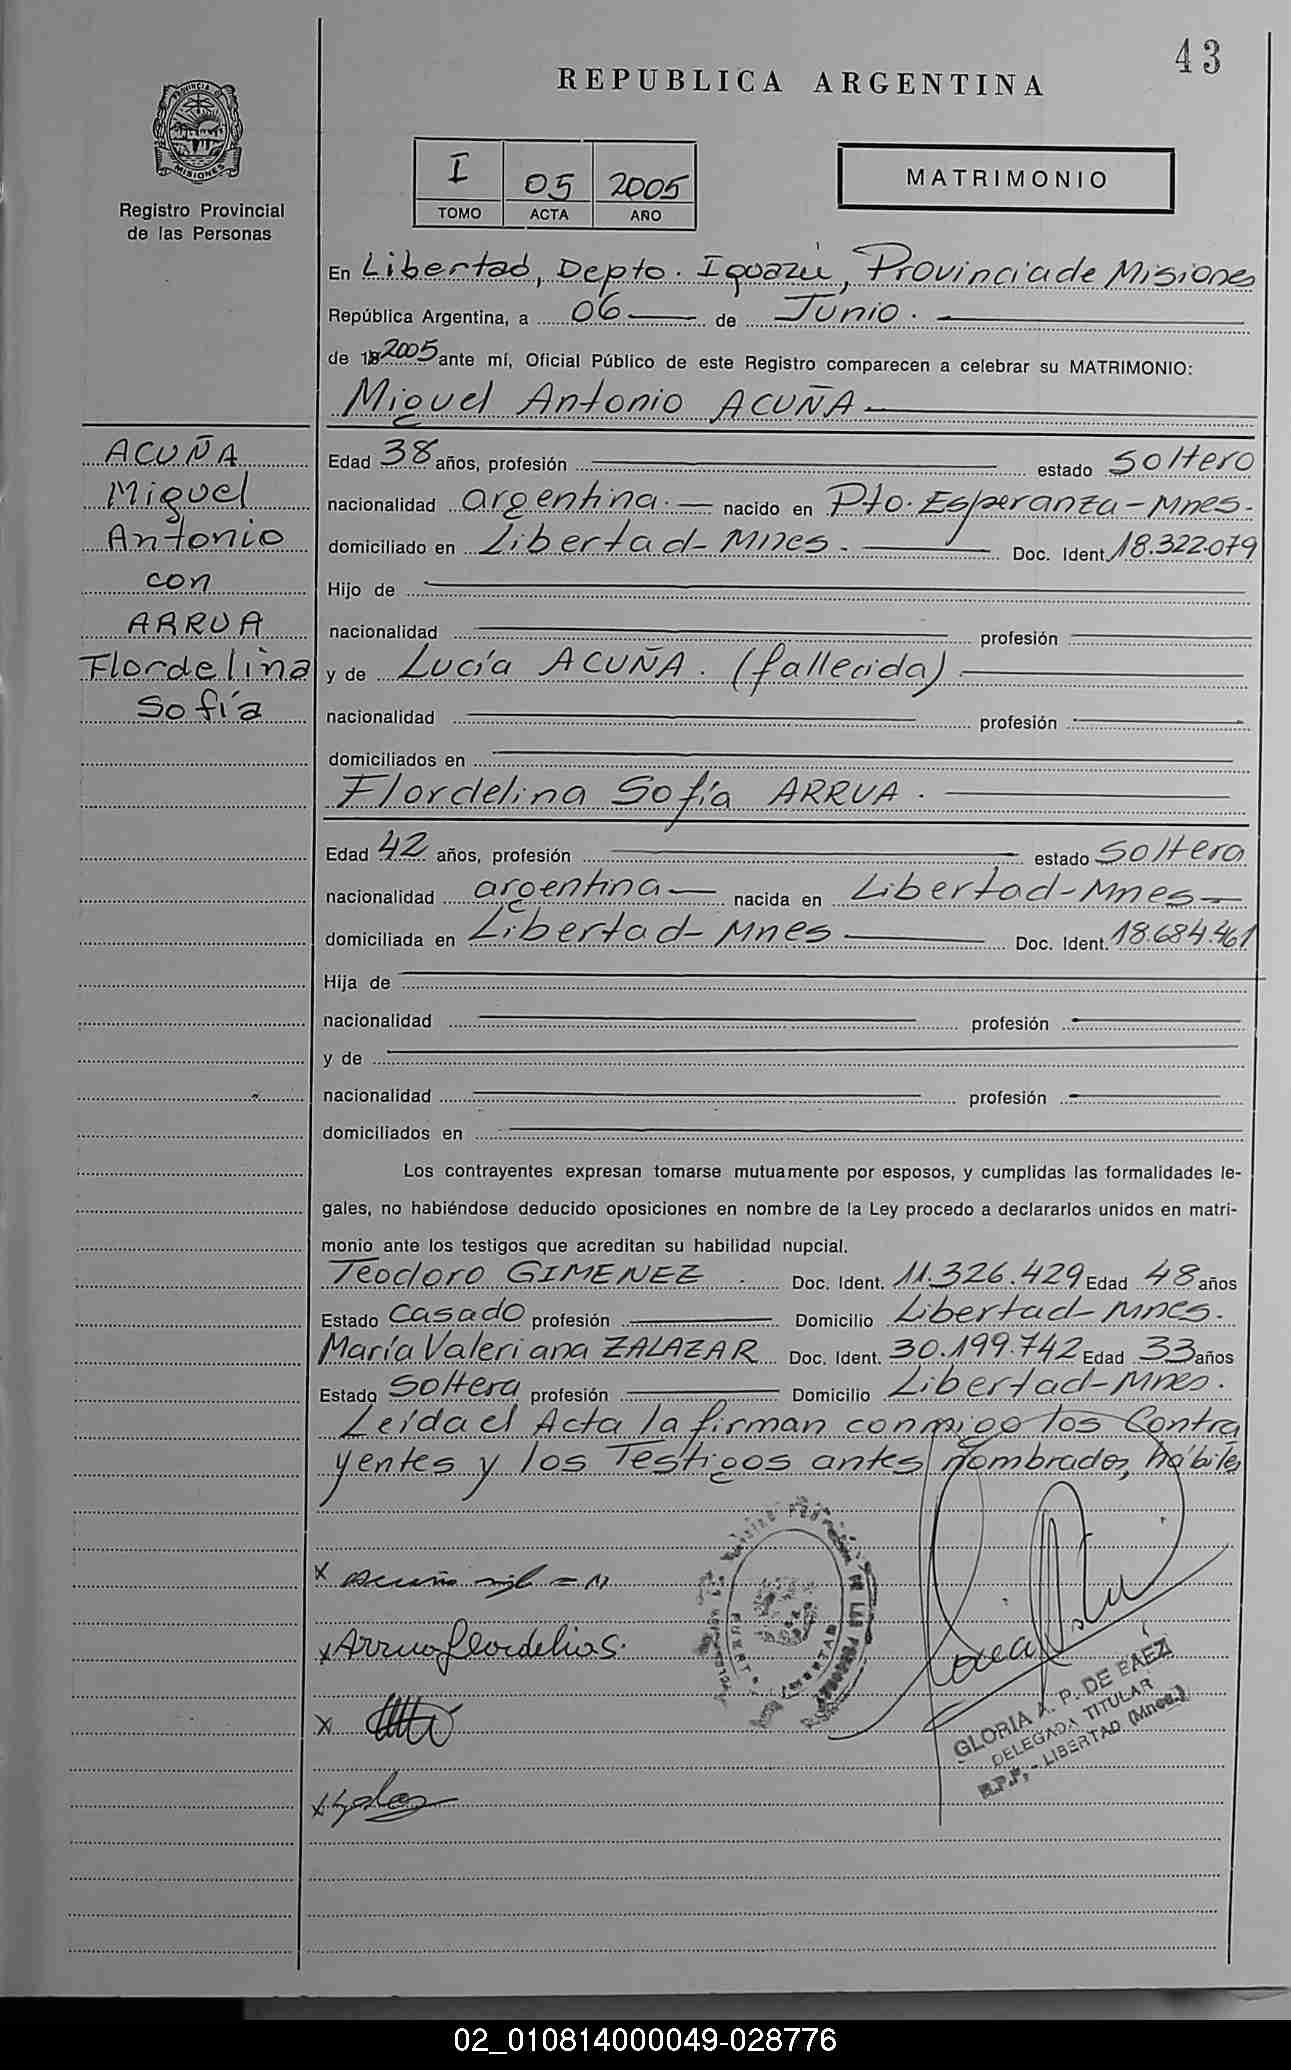 43
REPUBLICA ARGENTINA
PROVINCIA DE MISIONES
Registro Provincial
de las Personas
I 05 2005
TOMO ACTA AÑO
MATRIMONIO
En Libertad, Depto. Iguazú, Provincia de Misiones
República Argentina, a 06 de Junio.
de 2005 ante mí, Oficial Público de este Registro comparecen a celebrar su MATRIMONIO:
Miguel Antonio ACUÑA
ACUÑA
Miguel
Antonio
con
ARRUA
Flordelina
Sofía
Edad 38 años, profesión estado Soltero
nacionalidad argentina. nacido en Pto. Esperanza-Mnes.
domiciliado en Libertad-Mnes. Doc. Ident. 18.322.079
Hijo de
nacionalidad profesión
y de Lucía ACUÑA. (fallecida)
nacionalidad profesión
domiciliados en
Flordelina Sofía ARRUA.
Edad 42 años, profesión estado Soltera
nacionalidad argentina nacida en Libertad-Mnes
domiciliada en Libertad-Mnes Doc. Ident. 18.684.461
Hija de
nacionalidad profesión
y de
nacionalidad profesión
domiciliados en
Los contrayentes expresan tomarse mutuamente por esposos, y cumplidas las formalidades le-
gales, no habiéndose deducido oposiciones en nombre de la Ley procedo a declararlos unidos en matri-
monio ante los testigos que acreditan su habilidad nupcial.
Teodoro GIMENEZ Doc. Ident. 11.326.429 Edad 48 años
Estado Casado profesión Domicilio Libertad-Mnes.
María Valeriana ZALAZAR Doc. Ident. 30.199.742 Edad 33 años
Estado Soltera profesión Domicilio Libertad-Mnes.
Leída el Acta la firman conmigo los Contra
yentes y los Testigos antes nombrados, hábiles
x
x Arrua
x
x
GLORIA A. P. DE BAEZ
DELEGADA TITULAR
R.P.P. - LIBERTAD (Mnes.)
02_010814000049-028776